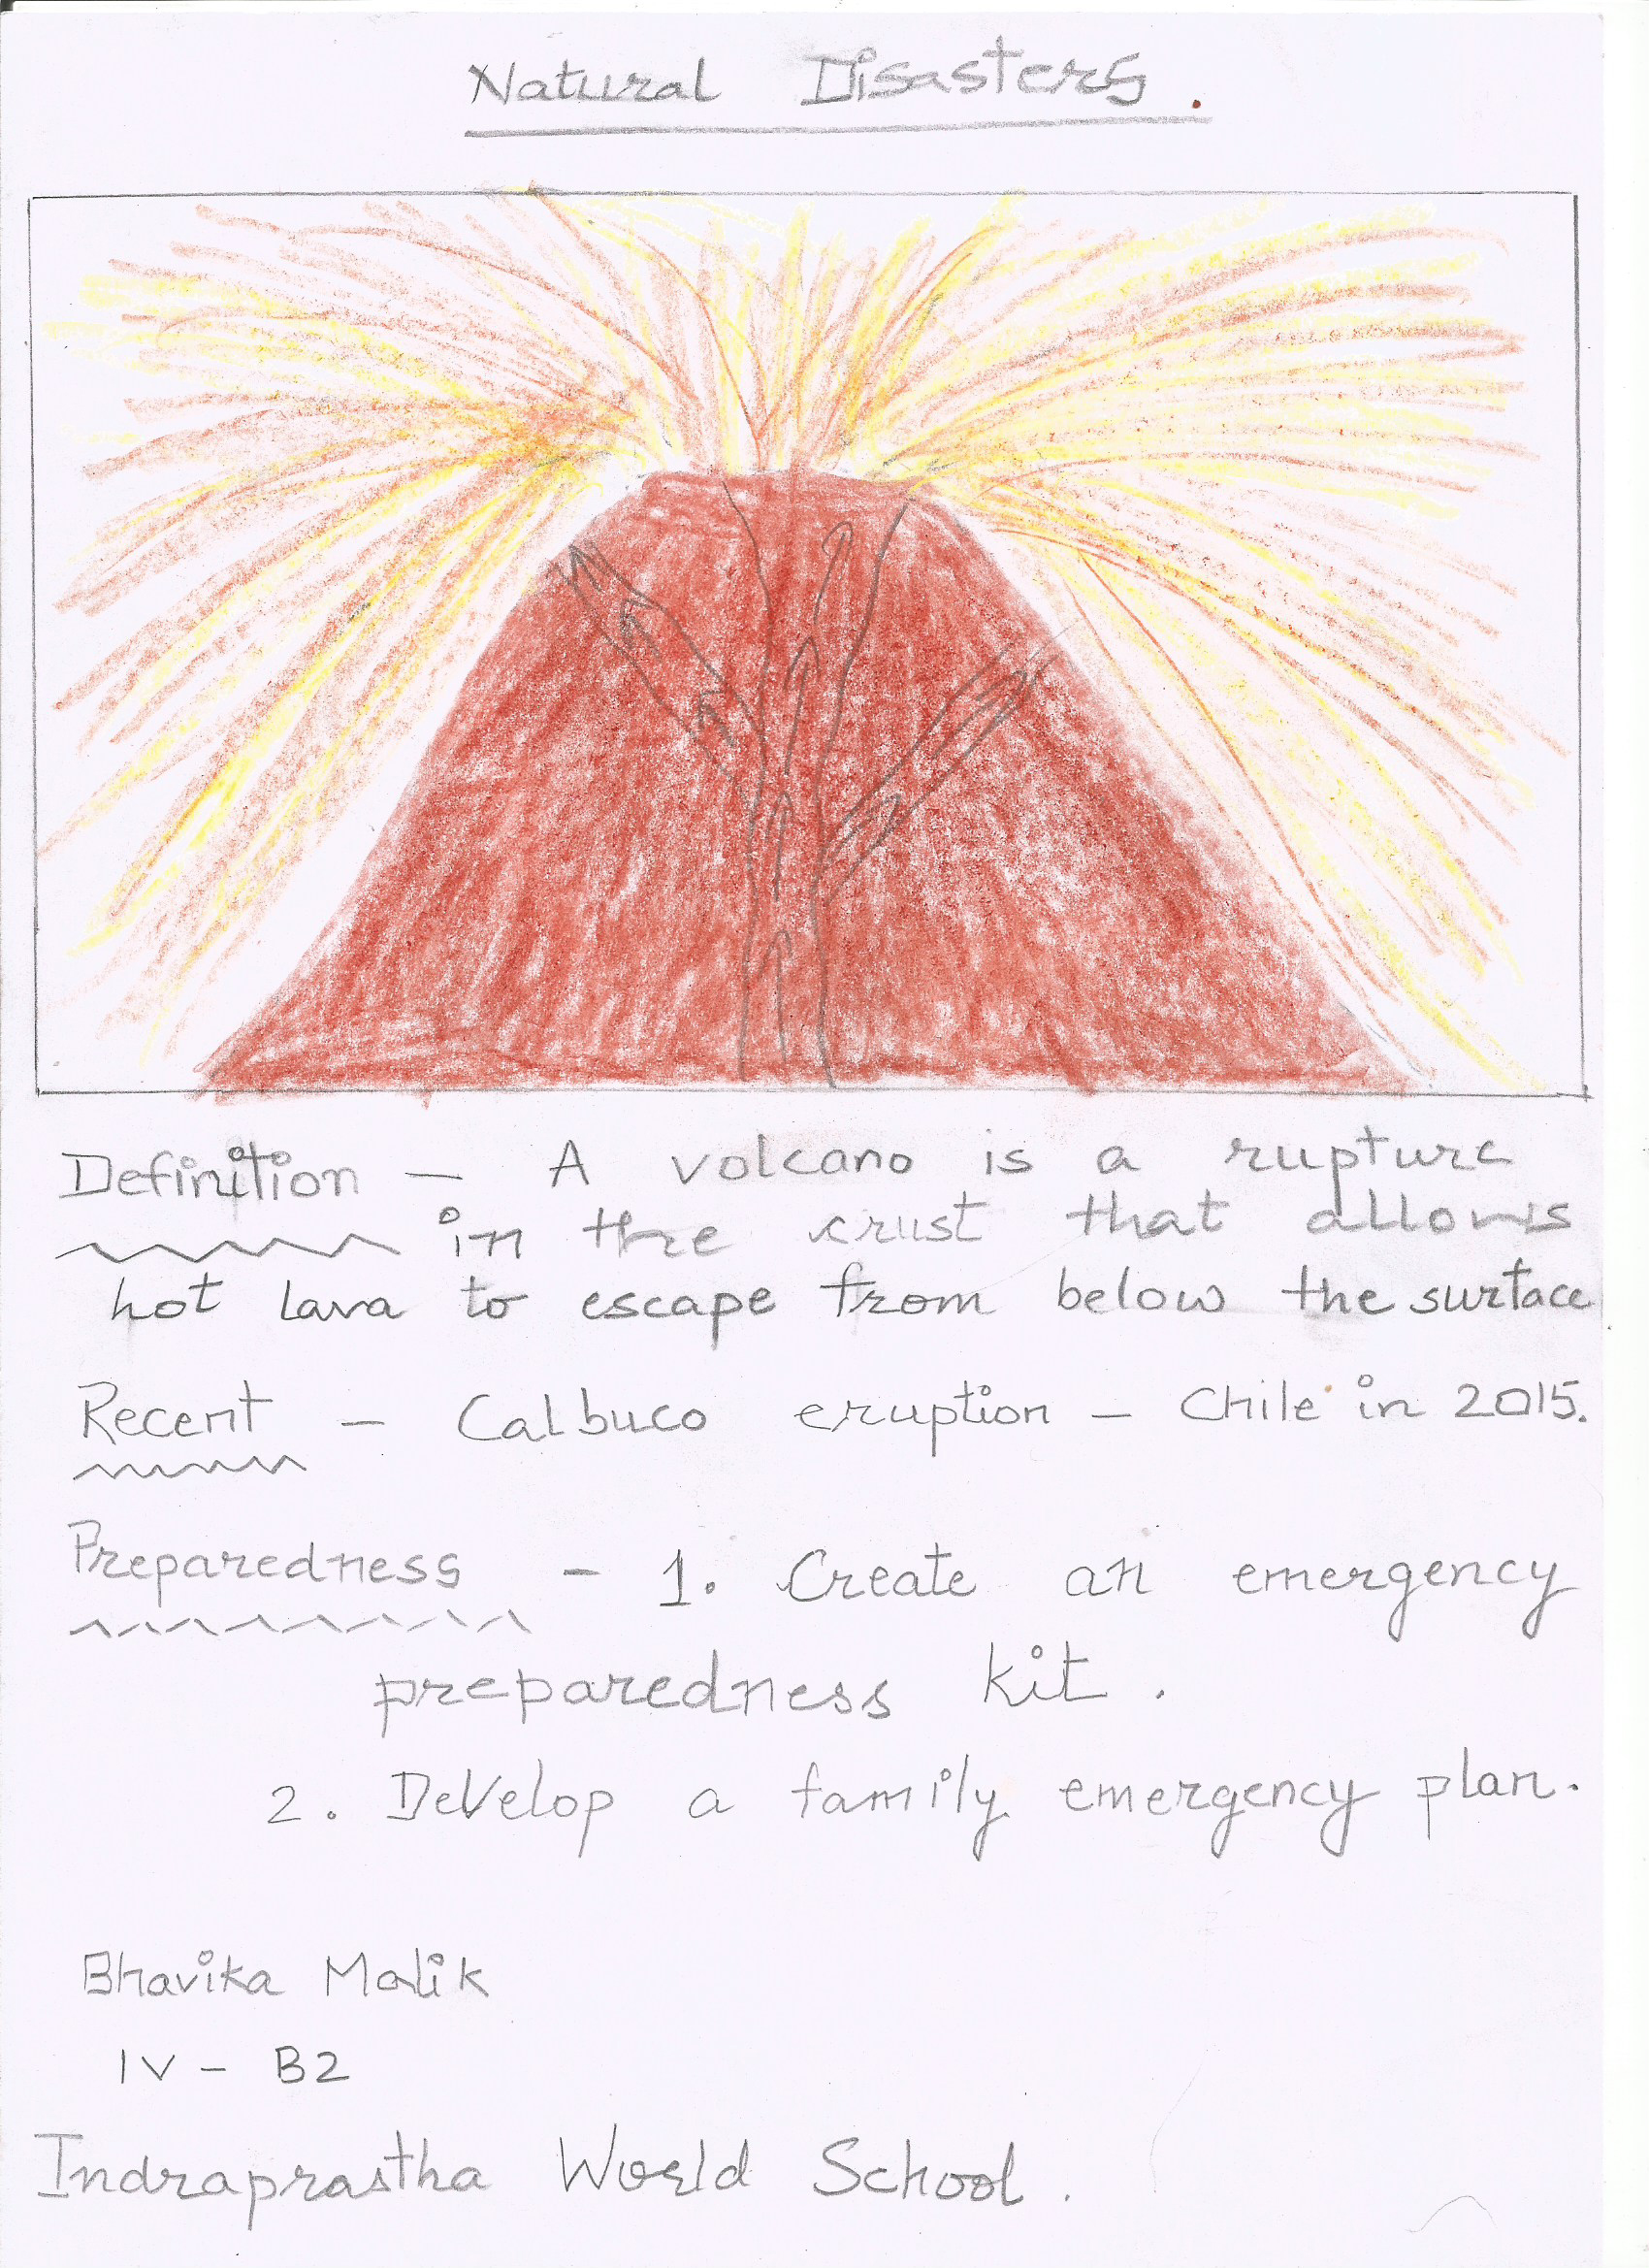 Natural Disasters.
Definition — A volcano is a rupture
in the crust that allows
hot lava to escape from below the surface
Recent — Calbuco eruption — Chile in 2015.
Preparedness - 1. Create an emergency
preparedness kit.
2. Develop a family emergency plan.
Bhavika Malik
IV - B2
Indraprastha World School.